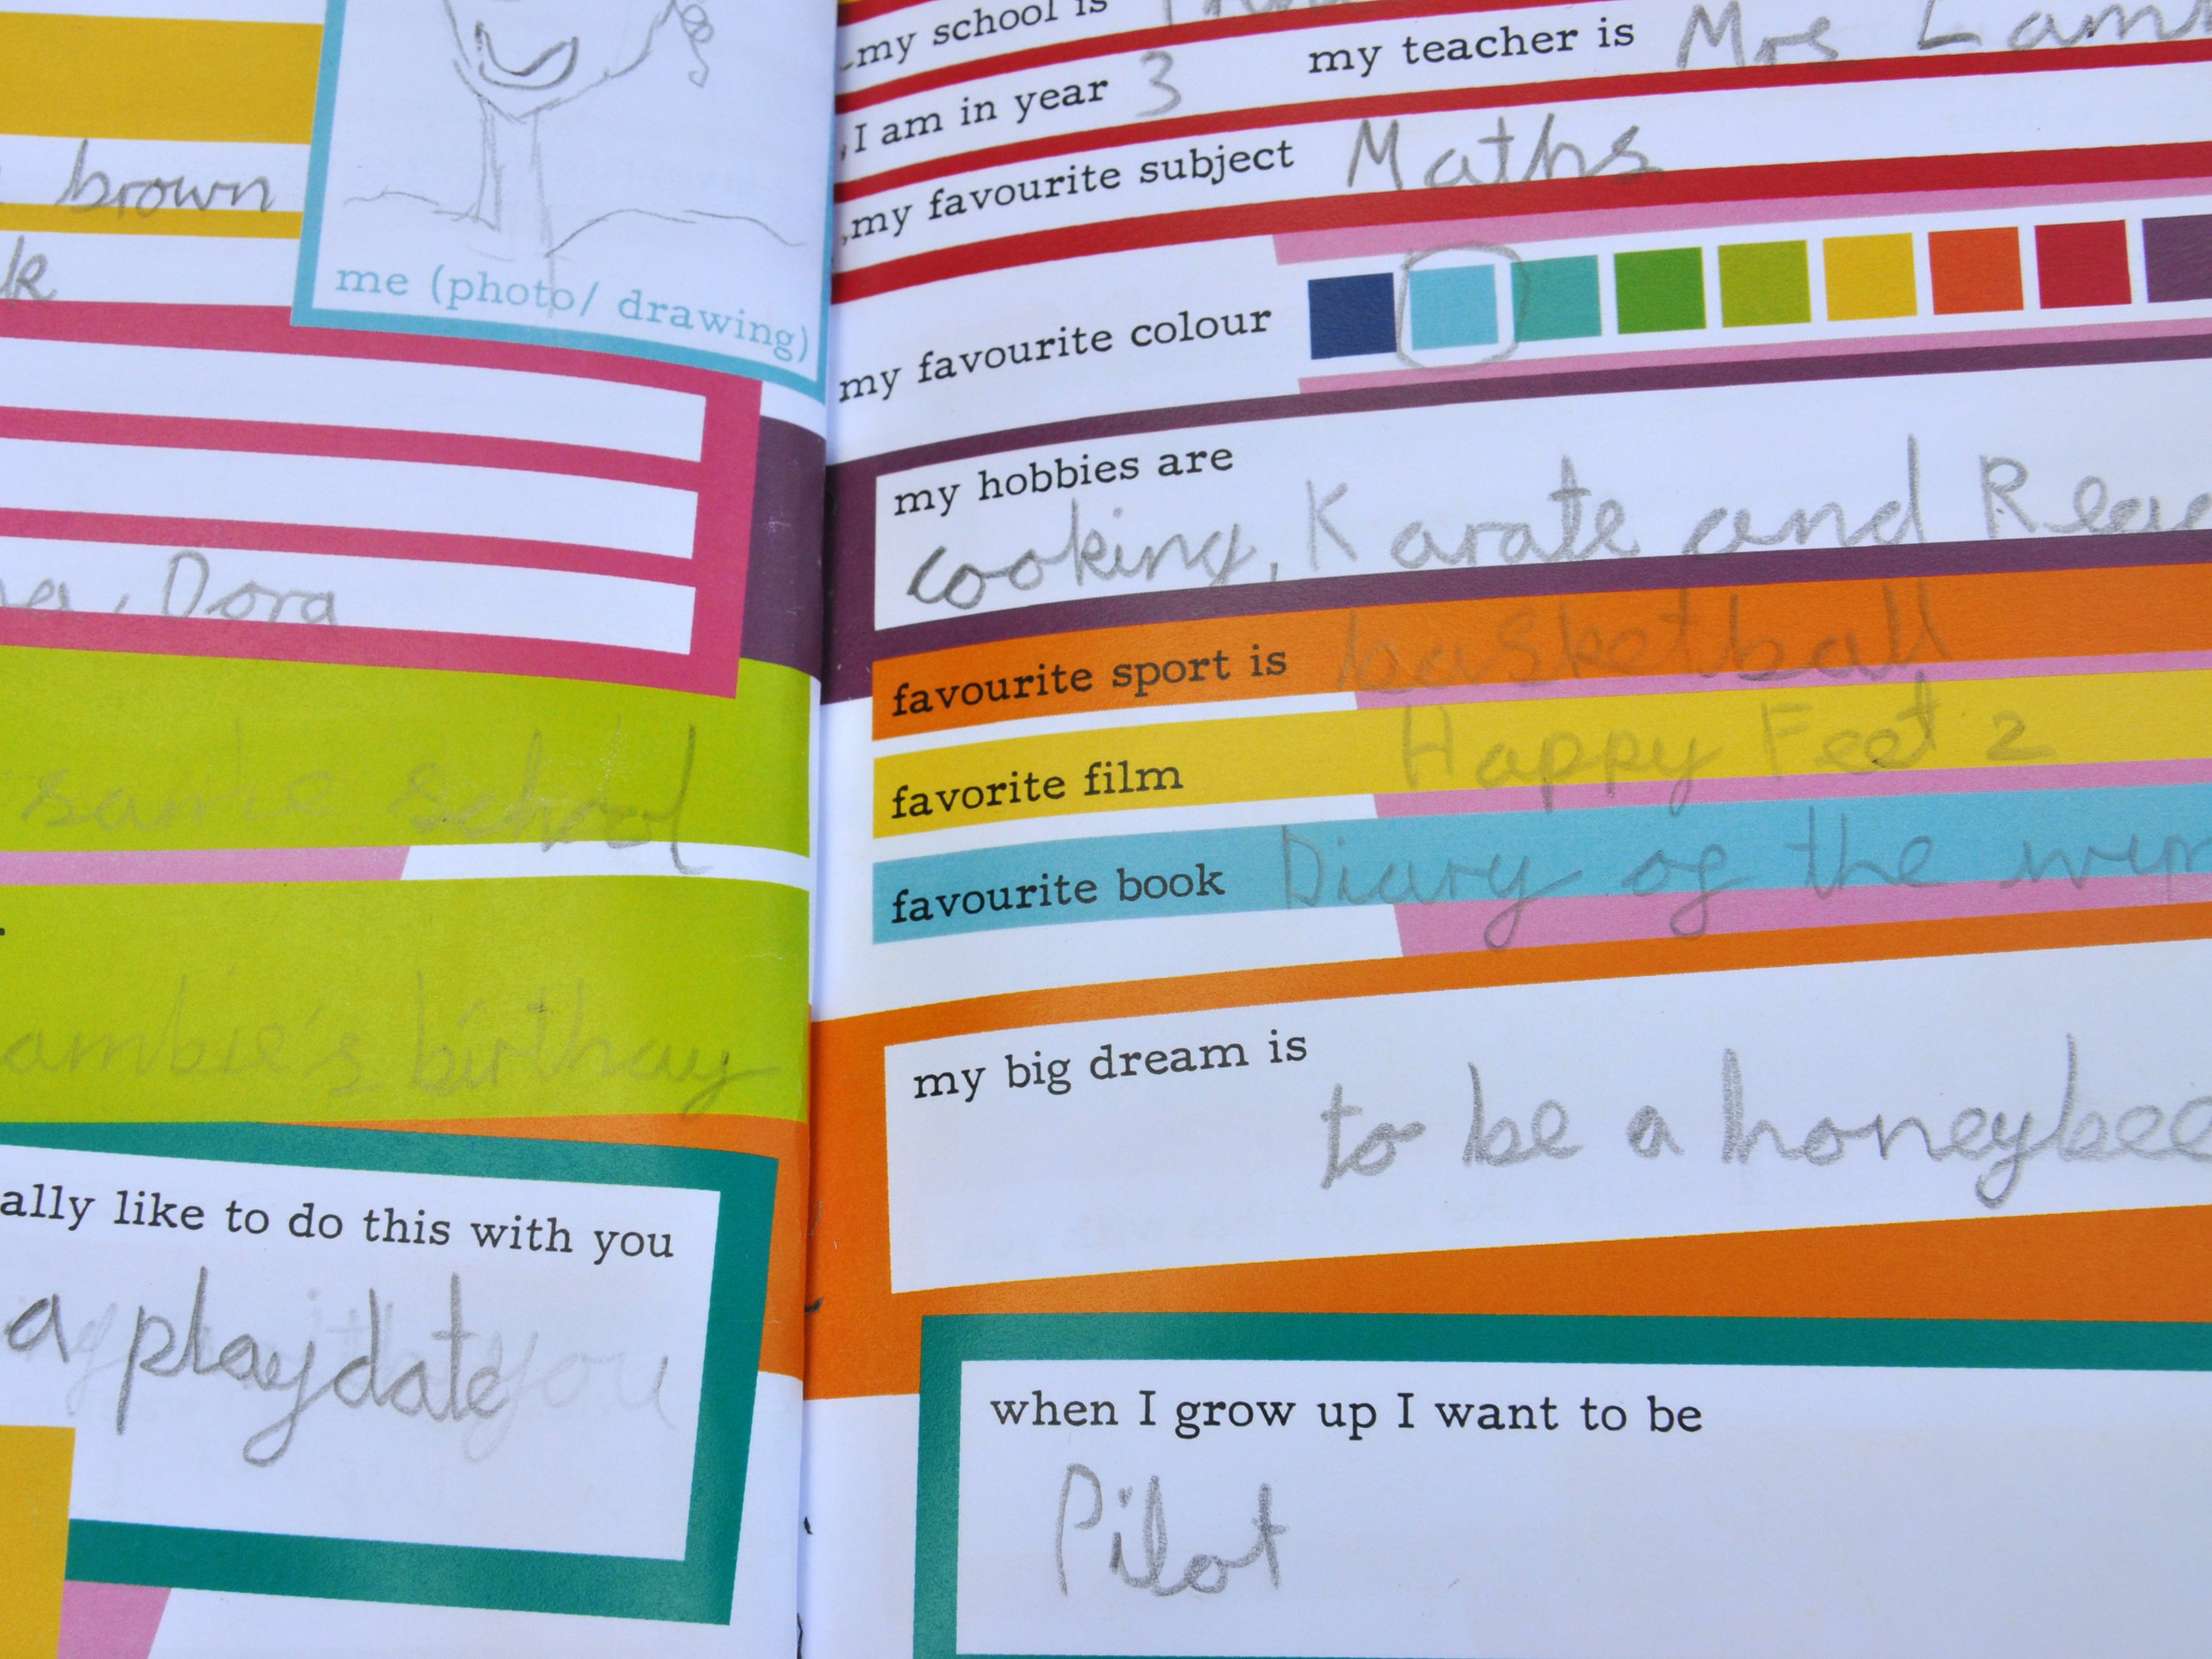 brown
me (photo/ drawing)
Dora
same school
birthay
like to do this with you
a playdate
you
my school is
I am in year 3 my teacher is Mrs
my favourite subject Maths
my favourite colour
my hobbies are
cooking, Karate and
favourite sport is basketball
favorite film Happy Feet 2
favourite book Diary of the
my big dream is
to be a honeybee
when I grow up I want to be
Pilot